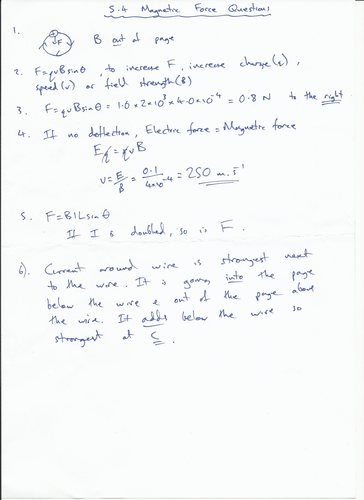 5.4 Magnetic Force Questions
1.
F
B out of page
2. F=qvBsinθ, to increase F, increase charge (q),
speed (v) or field strength (B)
3. F=qvBsinθ = 1.0 x 2x10³ x 4.0x10⁻⁴ = 0.8 N to the right
4. If no deflection, Electric force = Magnetic force
Eq = qvB
v = E/B = 0.1/4x10⁻⁴ = 250 m.s⁻¹
5. F=BILsinθ
If I is doubled, so is F.
6). Current around wire is strongest next
to the wire. It is going into the page
below the wire & out of the page above
the wire. It adds below the wire so
strongest at C